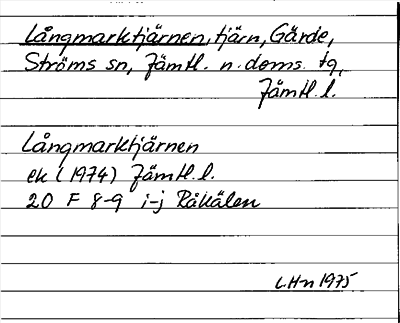 Långmarktjärnen, tjärn, Gärde,
Ströms sn, Jämtl. n. doms. tg,
Jämtl.l.
Långmarktjärnen
ek (1974) Jämtl.l.
20 F 8-9 i-j Råkälen
LHn 1975